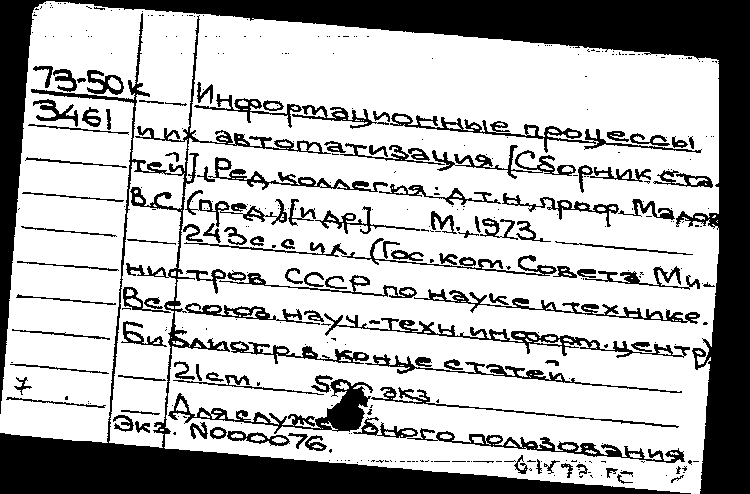 73-50к
3461
Информационные процессы
и их автоматизация. [Сборник ста-
тей]. [Ред. коллегия: д.т.н., проф. Малов
В.С. (пред.) [и др.]. М., 1973.
243с. с ил. (Гос. ком. Совета Ми-
нистров СССР по науке и технике.
Всесоюз. науч.-техн. информ. центр)
Библиогр. в конце статей.
21см. 500 экз.
Для служебного пользования.
Экз. N000076.
7